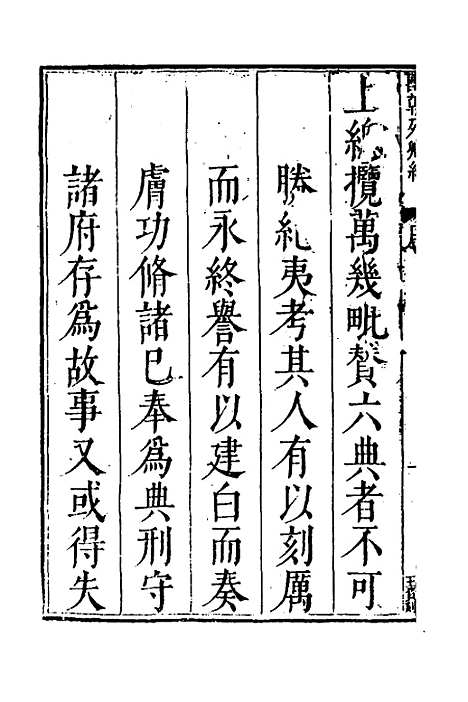 上總攬萬幾毗贊六典者不可
勝紀夷考其人有以刻厲
而永終譽有以建白而奏
膚功脩諸已奉為典刑守
諸府存為故事又或得失